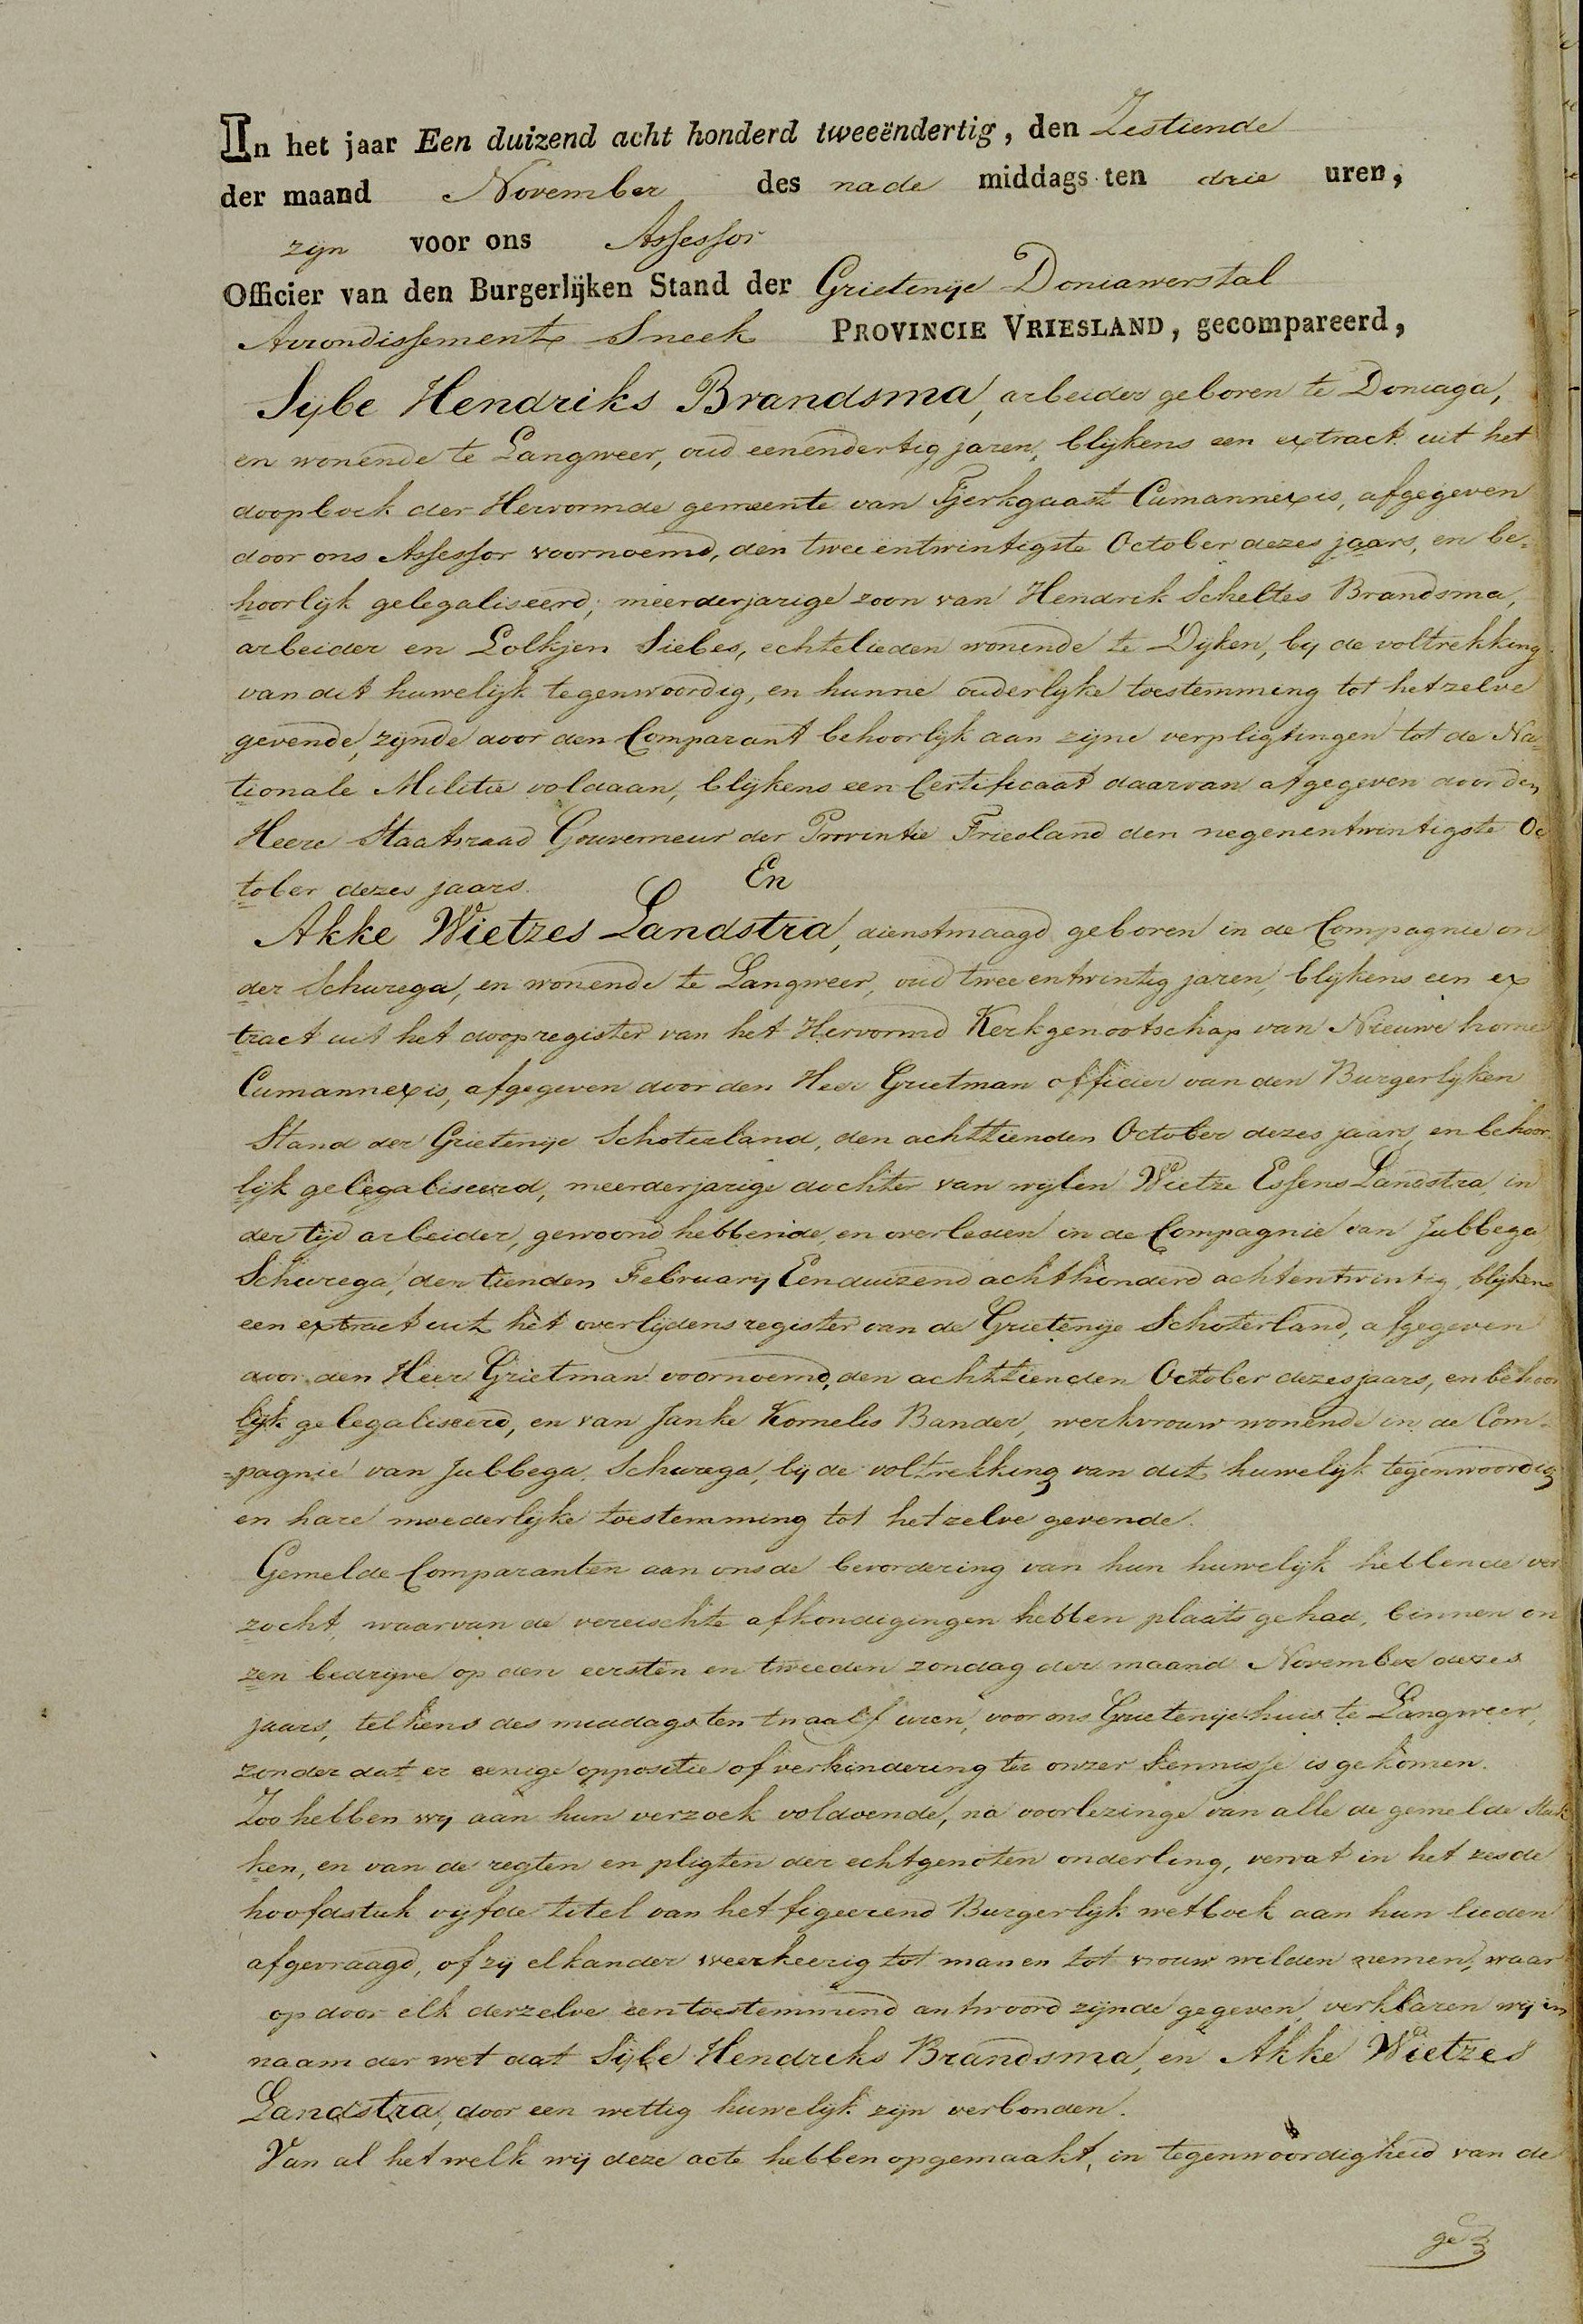 In het jaar Een duizend acht honderd tweeëndertig, den Zestiende
der maand November des nade middags ten drie uren,
zijn voor ons Assessor
Officier van den Burgerlijken Stand der Grietenije Doniawerstal
Arrondissement Sneek PROVINCIE VRIESLAND, gecompareerd,
Sijbe Hendriks Brandsma, arbeider geboren te Doniaga,
en wonende te Langweer, oud eenendertig jaren, blijkens een extract uit het
doopboek der Hervormde gemeente van Tjerkgaast Cumannexis, afgegeven
door ons Assessor voornoemd, den twee entwintigste October dezes jaars, en be-
hoorlijk gelegaliseerd; meerderjarige zoon van Hendrik Scheltes Brandsma,
arbeider en Lolkjen Siebes, echtelieden wonende te Dijken, bij de voltrekking
van dit huwelijk tegenwoordig, en hunne ouderlijke toestemming tot hetzelve
gevende, zijnde door den Comparant behoorlijk aan zijne verpligtingen tot de Na-
tionale Militie voldaan, blijkens een Certificaat daarvan afgegeven door den
Heere Staatsraad Gouverneur der Provintie Friesland den negenentwintigste Oc
tober dezes jaars. En
Akke Wietzes Landstra, dienstmaagd geboren in de Compagnie on
der Schurega, en wonende te Langweer, oud twee entwintig jaren, blijkens een ex
tract uit het doopregister van het Hervormd Kerkgenootschap van Nieuwe horne
Cumannexis, afgegeven door den Heer Grietman officier van den Burgerlijken
Stand der Grietenije Schoterland, den achttienden October dezes jaars, en behoor
lijk gelegaliseerd, meerderjarige dochter van wijlen Wietze Essens Landstra, in
der tijd arbeider, gewoond hebbende, en overleden in de Compagnie van Jubbega
Schurega, den tienden Februarij Eenduizend achthonderd achtentwintig, blijkens
een extract uit het overlijdensregister van de Grietenije Schoterland, afgegeven
door den Heer Grietman voornoemd, den achttienden October dezes jaars, en behoor
lijk gelegaliseerd, en van Janke Kornelis Bander, werkvrouw wonende in de Com-
=pagnie van Jubbega Schurega, bij de voltrekking van dit huwelijk tegenwoordig
en hare moederlijke toestemming tot hetzelve gevende.
Gemelde Comparanten aan ons de bevordering van hun huwelijk hebbende ver
zocht, waarvan de vereischte afkondigingen hebben plaats gehad, binnen on
zen bedrijve op den eersten en tweeden zondag der maand November dezes
jaars, telkens des middags ten twaalf uren, voor ons Grietenije huis te Langweer,
zonder dat er eenige oppositie of verhindering ter onzer kennisse is gekomen.
Zoo hebben wij aan hun verzoek voldoende, na voorlezinge van alle de gemelde Stuk
ken, en van de regten en pligten der echtgenoten onderling, vervat in het zesde
hoofdstuk vijfde titel van het figeerend Burgerlijk wetboek aan hun lieden
afgevraagd, of zij elkander weerkeerig tot man en tot vrouw wilden nemen, waar
op door elk derzelve een toestemmend antwoord zijnde gegeven, verklaren wij in
naam der wet dat Sijbe Hendriks Brandsma, en Akke Wietzes
Landstra, door een wettig huwelijk zijn verbonden.
Van al het welk wij deze acte hebben opgemaakt, in tegenwoordigheid van de